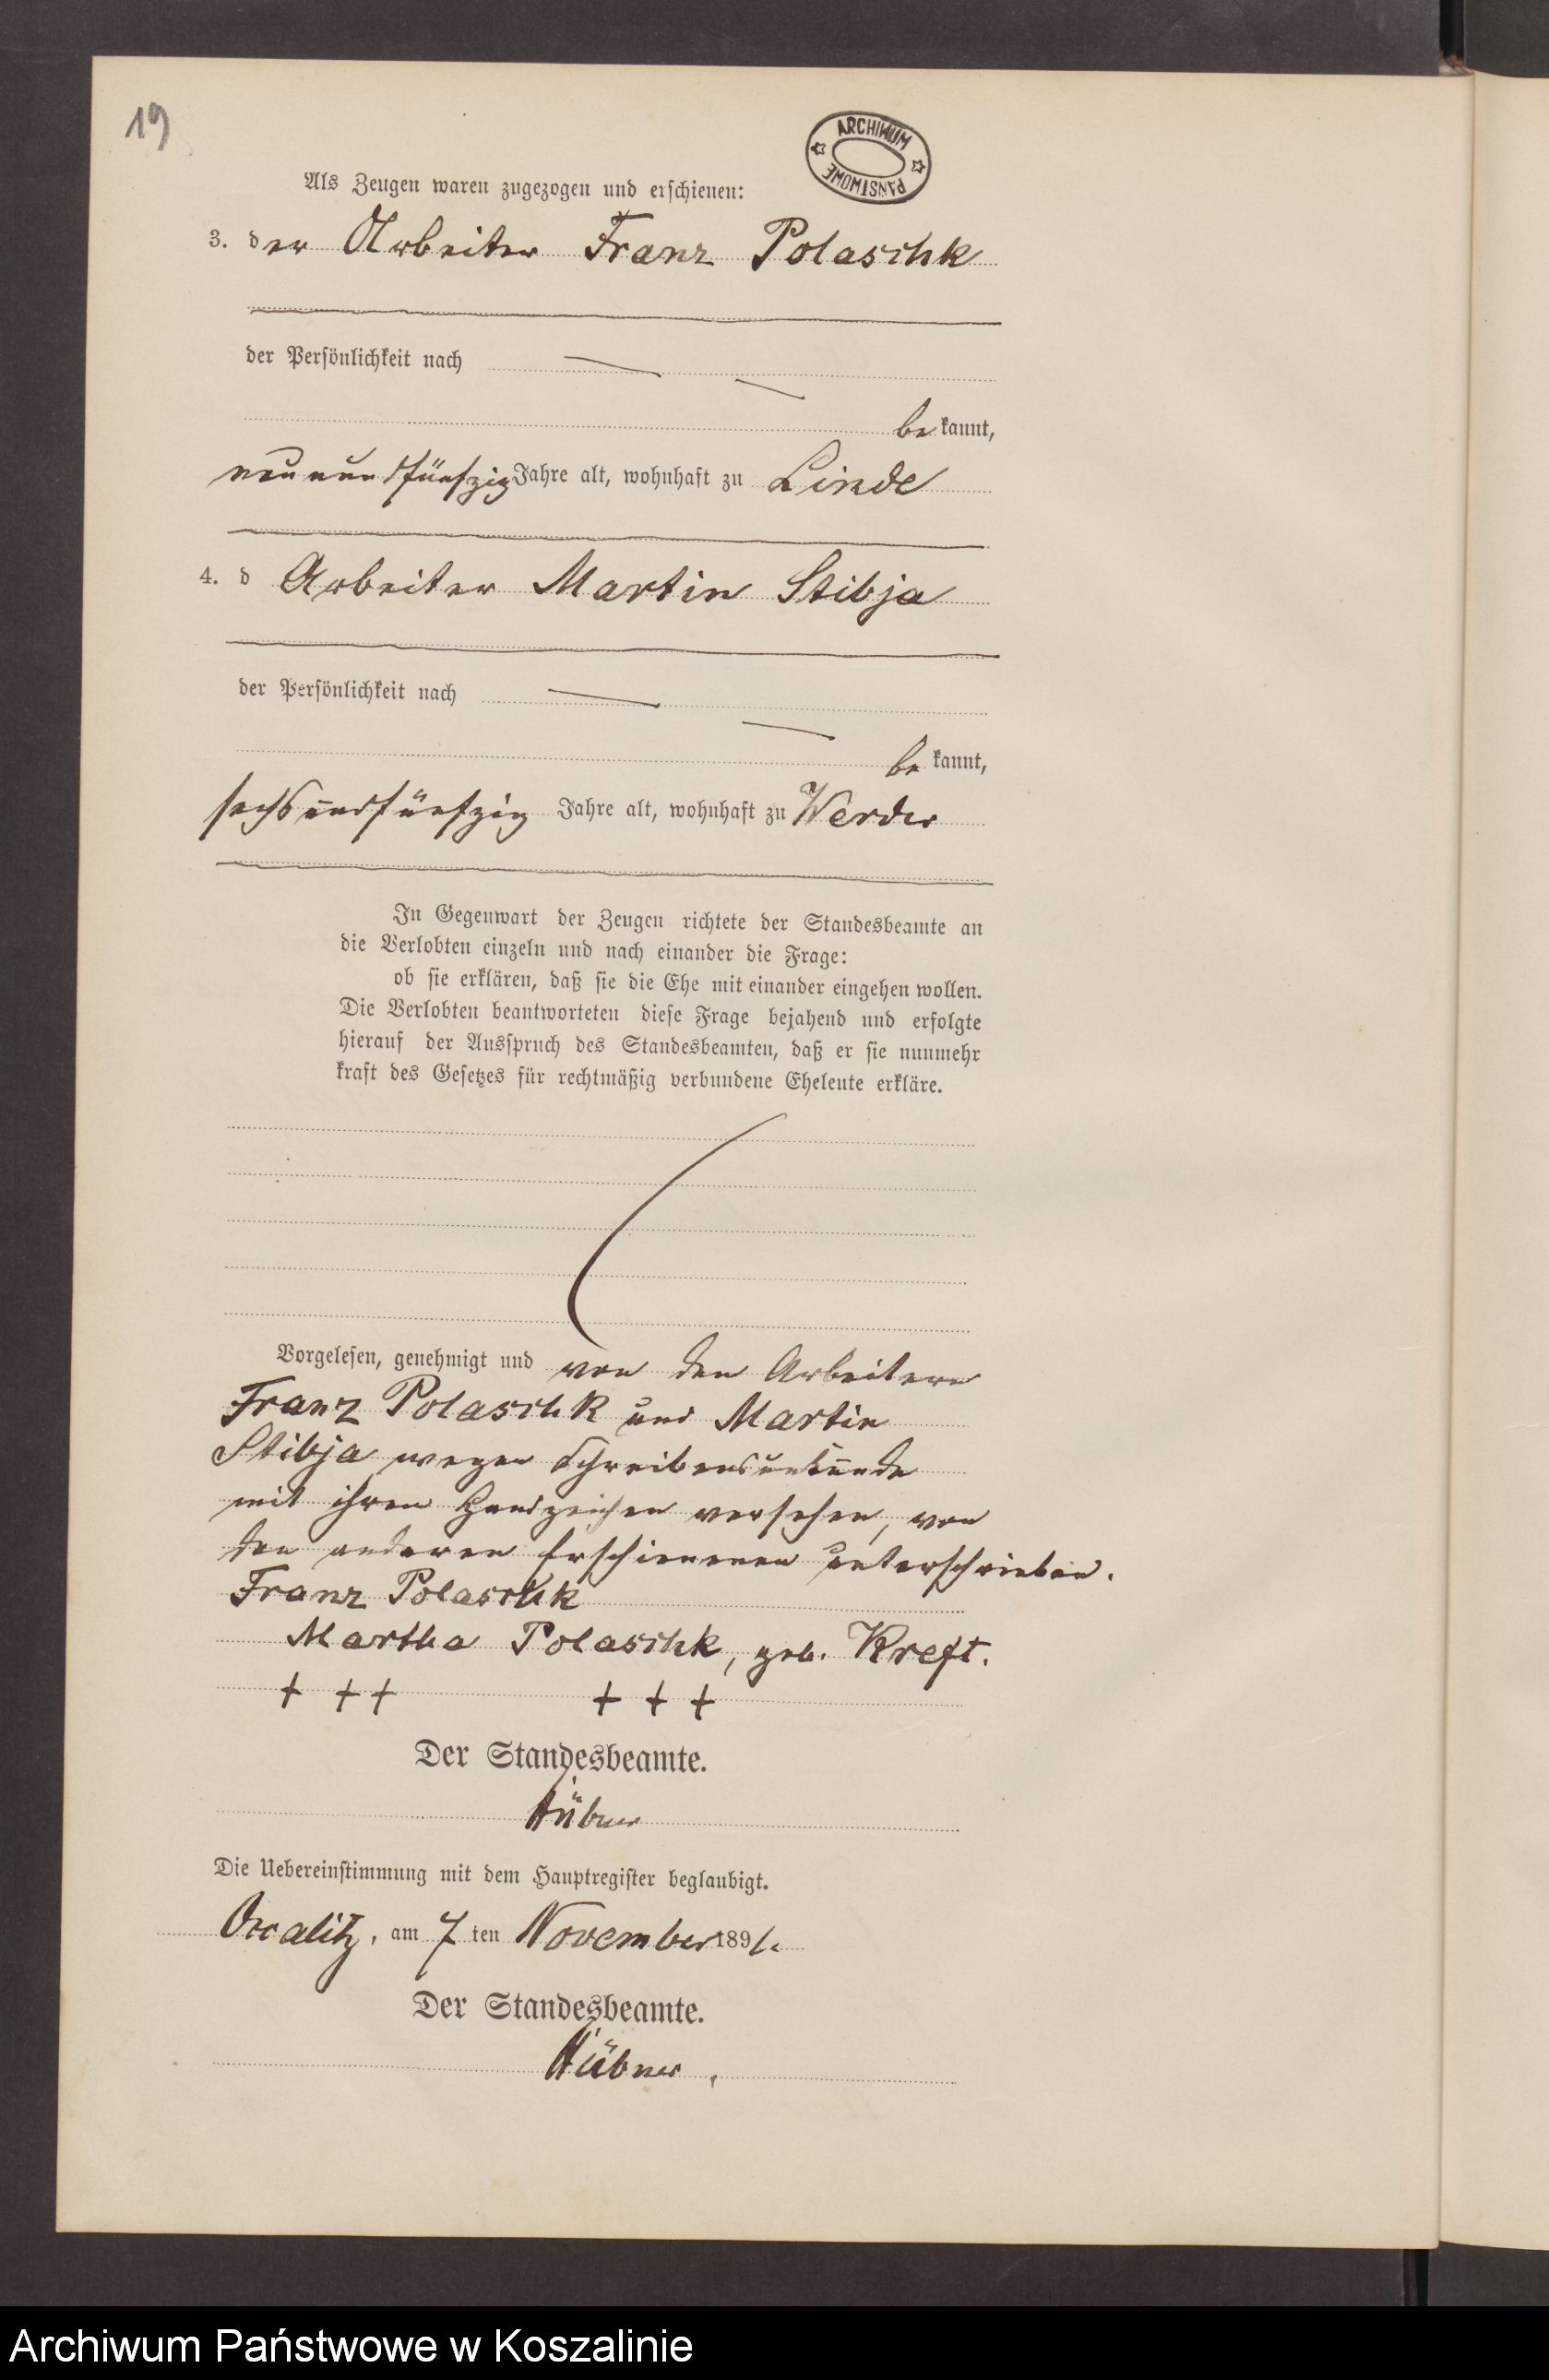 19
ARCHIWUM PAŃSTWOWE
Als Zeugen waren zugezogen und erschienen:
3. der Arbeiter Franz Polaschk
der Persönlichkeit nach
bekannt,
neunundfünfzig Jahre alt, wohnhaft zu Linde
4. d Arbeiter Martin Stibja
der Persönlichkeit nach
bekannt,
sechsundfünfzig Jahre alt, wohnhaft zu Werder
In Gegenwart der Zeugen richtete der Standesbeamte an
die Verlobten einzeln und nach einander die Frage:
ob sie erklären, daß sie die Ehe mit einander eingehen wollen.
Die Verlobten beantworteten diese Frage bejahend und erfolgte
hierauf der Ausspruch des Standesbeamten, daß er sie nunmehr
kraft des Gesetzes für rechtmäßig verbundene Eheleute erkläre.
Vorgelesen, genehmigt und von den Arbeitern
Franz Polaschk und Martin
Stibja wegen Schreibensunkunde
mit ihren Handzeichen versehen, von
den anderen Erschienenen unterschrieben.
Franz Polaschk
Martha Polaschk, geb. Kreft.
+ + + + + +
Der Standesbeamte.
Hübner
Die Uebereinstimmung mit dem Hauptregister beglaubigt.
Occalitz, am 7 ten November 1891.
Der Standesbeamte.
Hübner.
Archiwum Państwowe w Koszalinie